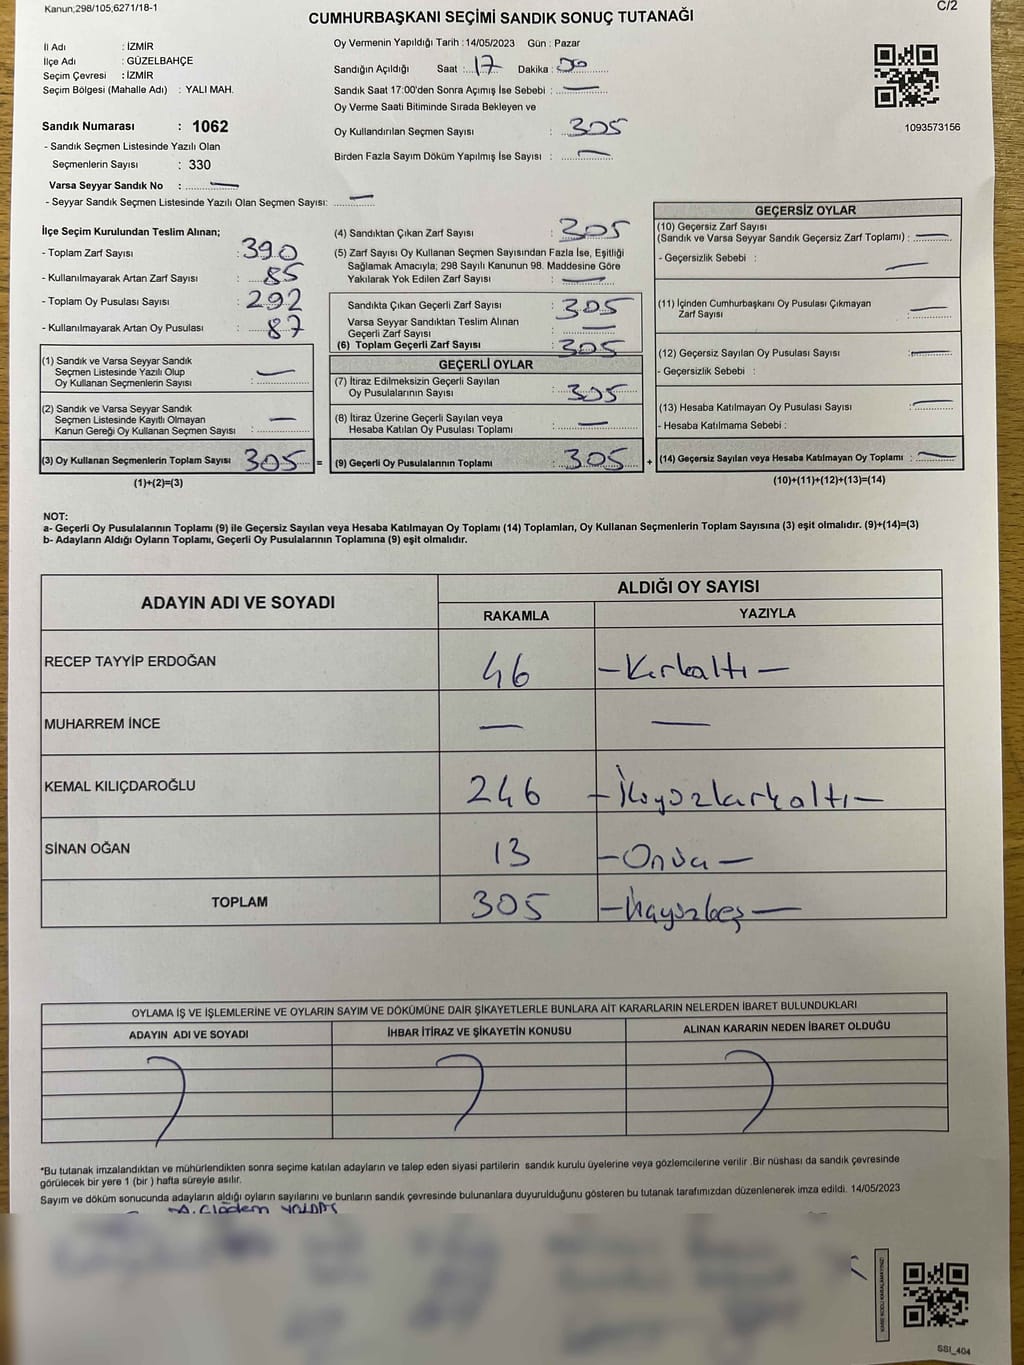 Kanun;298/105;6271/18-1
C/2
CUMHURBAŞKANI SEÇİMİ SANDIK SONUÇ TUTANAĞI
İl Adı : İZMİR
İlçe Adı : GÜZELBAHÇE
Seçim Çevresi : İZMİR
Seçim Bölgesi (Mahalle Adı) : YALI MAH.
Sandık Numarası : 1062
- Sandık Seçmen Listesinde Yazılı Olan
Seçmenlerin Sayısı : 330
Varsa Seyyar Sandık No : —
- Seyyar Sandık Seçmen Listesinde Yazılı Olan Seçmen Sayısı: —
Oy Vermenin Yapıldığı Tarih : 14/05/2023 Gün : Pazar
Sandığın Açıldığı Saat : 17 Dakika : 00
Sandık Saat 17:00'den Sonra Açımış İse Sebebi : —
Oy Verme Saati Bitiminde Sırada Bekleyen ve
Oy Kullandırılan Seçmen Sayısı : 305
Birden Fazla Sayım Döküm Yapılmış İse Sayısı : —
1093573156
İlçe Seçim Kurulundan Teslim Alınan;
- Toplam Zarf Sayısı : 390
- Kullanılmayarak Artan Zarf Sayısı : 85
- Toplam Oy Pusulası Sayısı : 292
- Kullanılmayarak Artan Oy Pusulası : 87
(1) Sandık ve Varsa Seyyar Sandık
Seçmen Listesinde Yazılı Olup
Oy Kullanan Seçmenlerin Sayısı : —
(2) Sandık ve Varsa Seyyar Sandık
Seçmen Listesinde Kayıtlı Olmayan
Kanun Gereği Oy Kullanan Seçmen Sayısı : —
(3) Oy Kullanan Seçmenlerin Toplam Sayısı 305 =
(1)+(2)=(3)
(4) Sandıktan Çıkan Zarf Sayısı : 305
(5) Zarf Sayısı Oy Kullanan Seçmen Sayısından Fazla İse, Eşitliği
Sağlamak Amacıyla; 298 Sayılı Kanunun 98. Maddesine Göre
Yakılarak Yok Edilen Zarf Sayısı : —
Sandıkta Çıkan Geçerli Zarf Sayısı : 305
Varsa Seyyar Sandıktan Teslim Alınan
Geçerli Zarf Sayısı : —
(6) Toplam Geçerli Zarf Sayısı : 305
GEÇERLİ OYLAR
(7) İtiraz Edilmeksizin Geçerli Sayılan
Oy Pusulalarının Sayısı : 305
(8) İtiraz Üzerine Geçerli Sayılan veya
Hesaba Katılan Oy Pusulası Toplamı : —
(9) Geçerli Oy Pusulalarının Toplamı : 305 +
GEÇERSİZ OYLAR
(10) Geçersiz Zarf Sayısı
(Sandık ve Varsa Seyyar Sandık Geçersiz Zarf Toplamı) : —
- Geçersizlik Sebebi : —
(11) İçinden Cumhurbaşkanı Oy Pusulası Çıkmayan
Zarf Sayısı : —
(12) Geçersiz Sayılan Oy Pusulası Sayısı : —
- Geçersizlik Sebebi :
(13) Hesaba Katılmayan Oy Pusulası Sayısı : —
- Hesaba Katılmama Sebebi :
(14) Geçersiz Sayılan veya Hesaba Katılmayan Oy Toplamı : —
(10)+(11)+(12)+(13)=(14)
NOT:
a- Geçerli Oy Pusulalarının Toplamı (9) ile Geçersiz Sayılan veya Hesaba Katılmayan Oy Toplamı (14) Toplamları, Oy Kullanan Seçmenlerin Toplam Sayısına (3) eşit olmalıdır. (9)+(14)=(3)
b- Adayların Aldığı Oyların Toplamı, Geçerli Oy Pusulalarının Toplamına (9) eşit olmalıdır.
ADAYIN ADI VE SOYADI
ALDIĞI OY SAYISI
RAKAMLA YAZIYLA
RECEP TAYYİP ERDOĞAN 46 —Kırkaltı—
MUHARREM İNCE — —
KEMAL KILIÇDAROĞLU 246 —İkiyüzkırkaltı—
SİNAN OĞAN 13 —Onüç—
TOPLAM 305 —üçyüzbeş—
OYLAMA İŞ VE İŞLEMLERİNE VE OYLARIN SAYIM VE DÖKÜMÜNE DAİR ŞİKAYETLERLE BUNLARA AİT KARARLARIN NELERDEN İBARET BULUNDUKLARI
ADAYIN ADI VE SOYADI İHBAR İTİRAZ VE ŞİKAYETİN KONUSU ALINAN KARARIN NEDEN İBARET OLDUĞU
*Bu tutanak imzalandıktan ve mühürlendikten sonra seçime katılan adayların ve talep eden siyasi partilerin sandık kurulu üyelerine veya gözlemcilerine verilir .Bir nüshası da sandık çevresinde
görülecek bir yere 1 (bir ) hafta süreyle asılır.
Sayım ve döküm sonucunda adayların aldığı oyların sayılarını ve bunların sandık çevresinde bulunanlara duyurulduğunu gösteren bu tutanak tarafımızdan düzenlenerek imza edildi. 14/05/2023
SSI_404